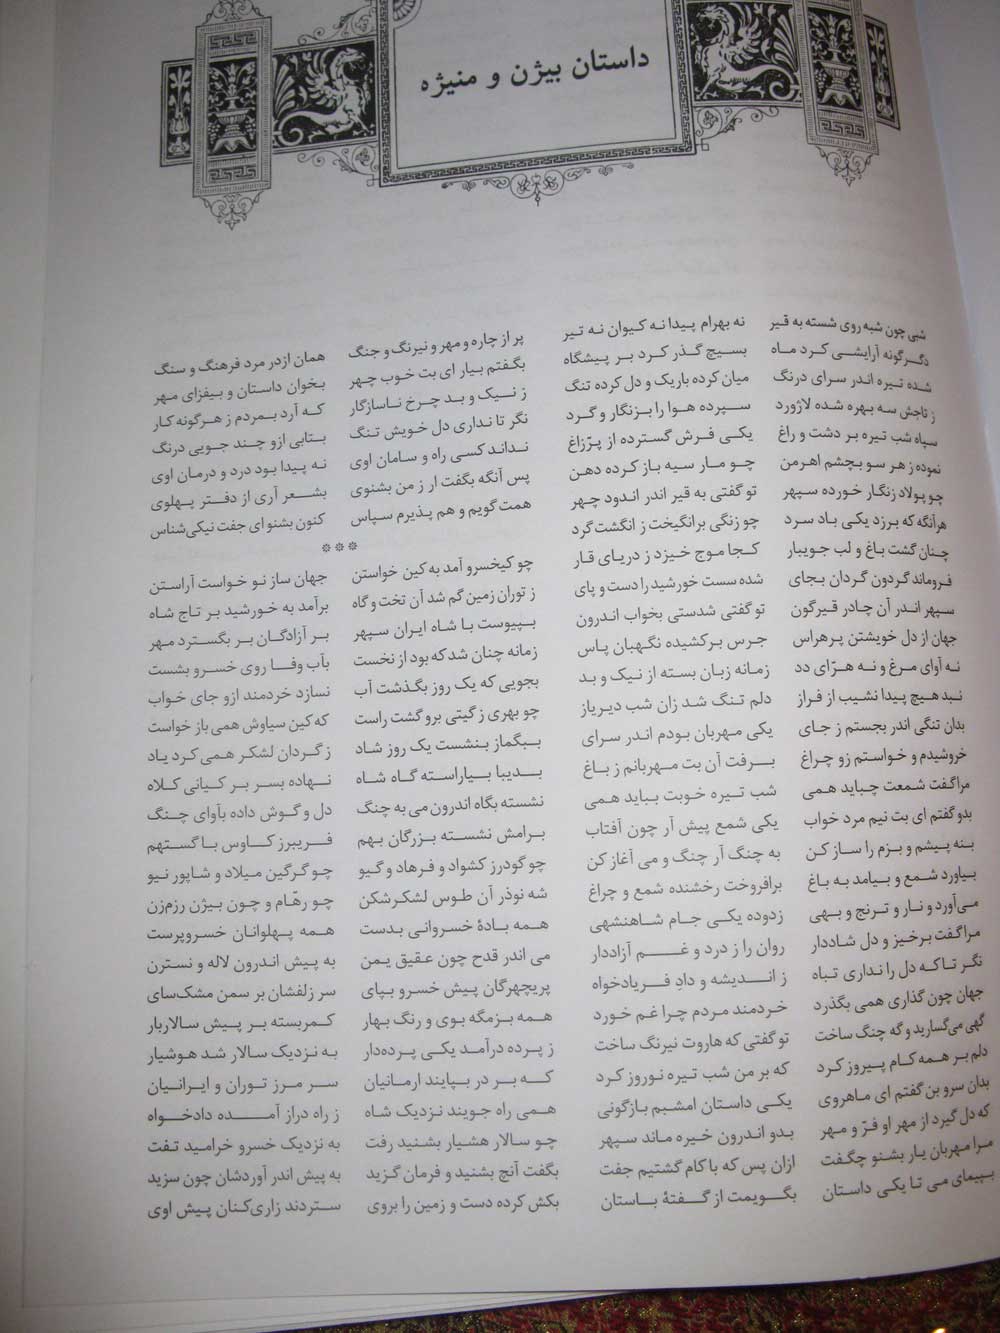 داستان بیژن و منیژه
شبی چون شبه روی شسته به قیر نه بهرام پیدا نه کیوان نه تیر
دگرگونه آرایشی کرد ماه بسیچ گذر کرد بر پیشگاه
شده تیره اندر سرای درنگ میان کرده باریک و دل کرده تنگ
ز تاجش سه بهره شده لاژورد سپرده هوا را بزنگار و گرد
سپاه شب تیره بر دشت و راغ یکی فرش گسترده از پرّزاغ
نموده ز هر سو بچشم اهرمن چو مار سیه باز کرده دهن
چو پولاد زنگار خورده سپهر تو گفتی به قیر اندر اندود چهر
هرآنگه که برزد یکی باد سرد چو زنگی برانگیخت ز انگشت گرد
چنان گشت باغ و لب جویبار کجا موج خیزد ز دریای قار
فروماند گردون گردان بجای شده سست خورشید را دست و پای
سپهر اندر آن چادر قیرگون تو گفتی شدستی بخواب اندرون
جهان از دل خویشتن پرهراس جرس برکشیده نگهبان پاس
نه آوای مرغ و نه هرّای دد زمانه زبان بسته از نیک و بد
نبد هیچ پیدا نشیب از فراز دلم تنگ شد زان شب دیریاز
بدان تنگی اندر بجستم ز جای یکی مهربان بودم اندر سرای
خروشیدم و خواستم زو چراغ برفت آن بت مهربانم ز باغ
مرا گفت شمعت چباید همی شب تیره خوبت بباید همی
بدو گفتم ای بت نیم مرد خواب یکی شمع پیش آر چون آفتاب
بنه پیشم و بزم را ساز کن به چنگ آر چنگ و می آغاز کن
بیاورد شمع و بیامد به باغ برافروخت رخشنده شمع و چراغ
می‌آورد و نار و ترنج و بهی زدوده یکی جام شاهنشهی
مرا گفت برخیز و دل شاددار روان را ز درد و غم آزاددار
نگر تا که دل را نداری تباه ز اندیشه و داد فریادخواه
جهان چون گذاری همی بگذرد خردمند مردم چرا غم خورد
گهی می‌گسارید و گه چنگ ساخت تو گفتی که هاروت نیرنگ ساخت
دلم بر همه کام پیروز کرد که بر من شب تیره نوروز کرد
بدان سرو بن گفتم ای ماهروی یکی داستان امشبم بازگوی
که دل گیرد از مهر او فرّ و مهر بدو اندرون خیره ماند سپهر
مرا مهربان یار بشنو چگفت ازان پس که با کام گشتیم جفت
بپیمای می تا یکی داستان بگویمت از گفتهٔ باستان
پر از چاره و مهر و نیرنگ و جنگ همان ازدر مرد فرهنگ و سنگ
بگفتم بیار ای بت خوب چهر بخوان داستان و بیفزای مهر
ز نیک و بد چرخ ناسازگار که آرد بمردم ز هرگونه کار
نگر تا نداری دل خویش تنگ بتابی ازو چند جویی درنگ
نداند کسی راه و سامان اوی نه پیدا بود درد و درمان اوی
پس آنگه بگفت ار ز من بشنوی بشعر آری از دفتر پهلوی
همت گویم و هم پذیرم سپاس کنون بشنو ای جفت نیکی‌شناس
***
چو کیخسرو آمد به کین خواستن جهان ساز نو خواست آراستن
ز توران زمین گم شد آن تخت و گاه برآمد به خورشید بر تاج شاه
بپیوست با شاه ایران سپهر بر آزادگان بر بگسترد مهر
زمانه چنان شد که بود از نخست بآب وفا روی خسرو بشست
بجویی که یک روز بگذشت آب نسازد خردمند ازو جای خواب
چو بهری ز گیتی برو گشت راست که کین سیاوش همی باز خواست
ببگماز بنشست یک روز شاد ز گردان لشکر همی کرد یاد
بدیبا بیاراسته گاه شاه نهاده بسر بر کیانی کلاه
نشسته بگاه اندرون می به چنگ دل و گوش داده بآوای چنگ
برامش نشسته بزرگان بهم فریبرز کاوس با گستهم
چو گودرز کشواد و فرهاد و گیو چو گرگین میلاد و شاپور نیو
شه نوذر آن طوس لشکرشکن چو رهّام و چون بیژن رزم‌زن
همه بادهٔ خسروانی بدست همه پهلوانان خسروپرست
می اندر قدح چون عقیق یمن به پیش اندرون لاله و نسترن
پریچهرگان پیش خسرو بپای سر زلفشان بر سمن مشک‌سای
همه بزمگه بوی و رنگ بهار کمربسته بر پیش سالاربار
ز پرده درآمد یکی پرده‌دار به نزدیک سالار شد هوشیار
که بر در بپایند ارمانیان سر مرز توران و ایرانیان
همی راه جویند نزدیک شاه ز راه دراز آمده دادخواه
چو سالار هشیار بشنید رفت به نزدیک خسرو خرامید تفت
بگفت آنچ بشنید و فرمان گزید به پیش اندر آوردشان چون سزید
بکش کرده دست و زمین را بروی ستردند زاری‌کنان پیش اوی